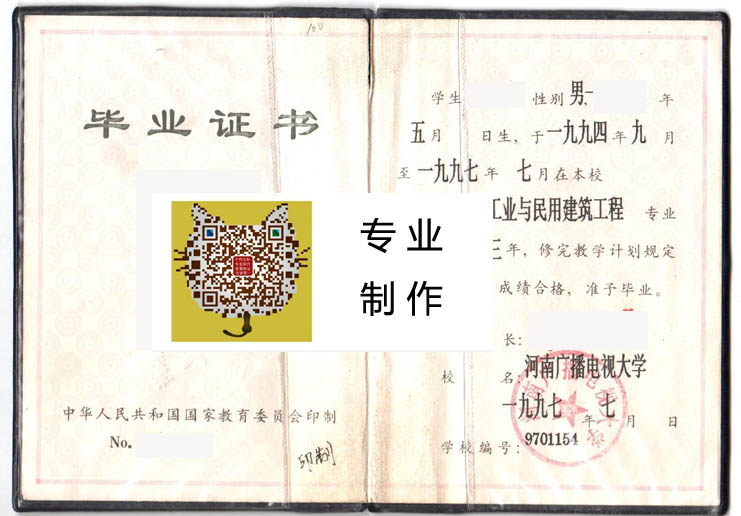 100
毕业证书
中华人民共和国国家教育委员会印制
No.
印制
学生 性别 男 一 年
五月 日生,于一九九四年九月
至一九九七年 七月在本校
工业与民用建筑工程 专业
三年,修完教学计划规定
成绩合格,准予毕业。
长:
校 名:河南广播电视大学
一九九七年七月 日
学校编号:9701154
河南广播电视大学
专业
制作